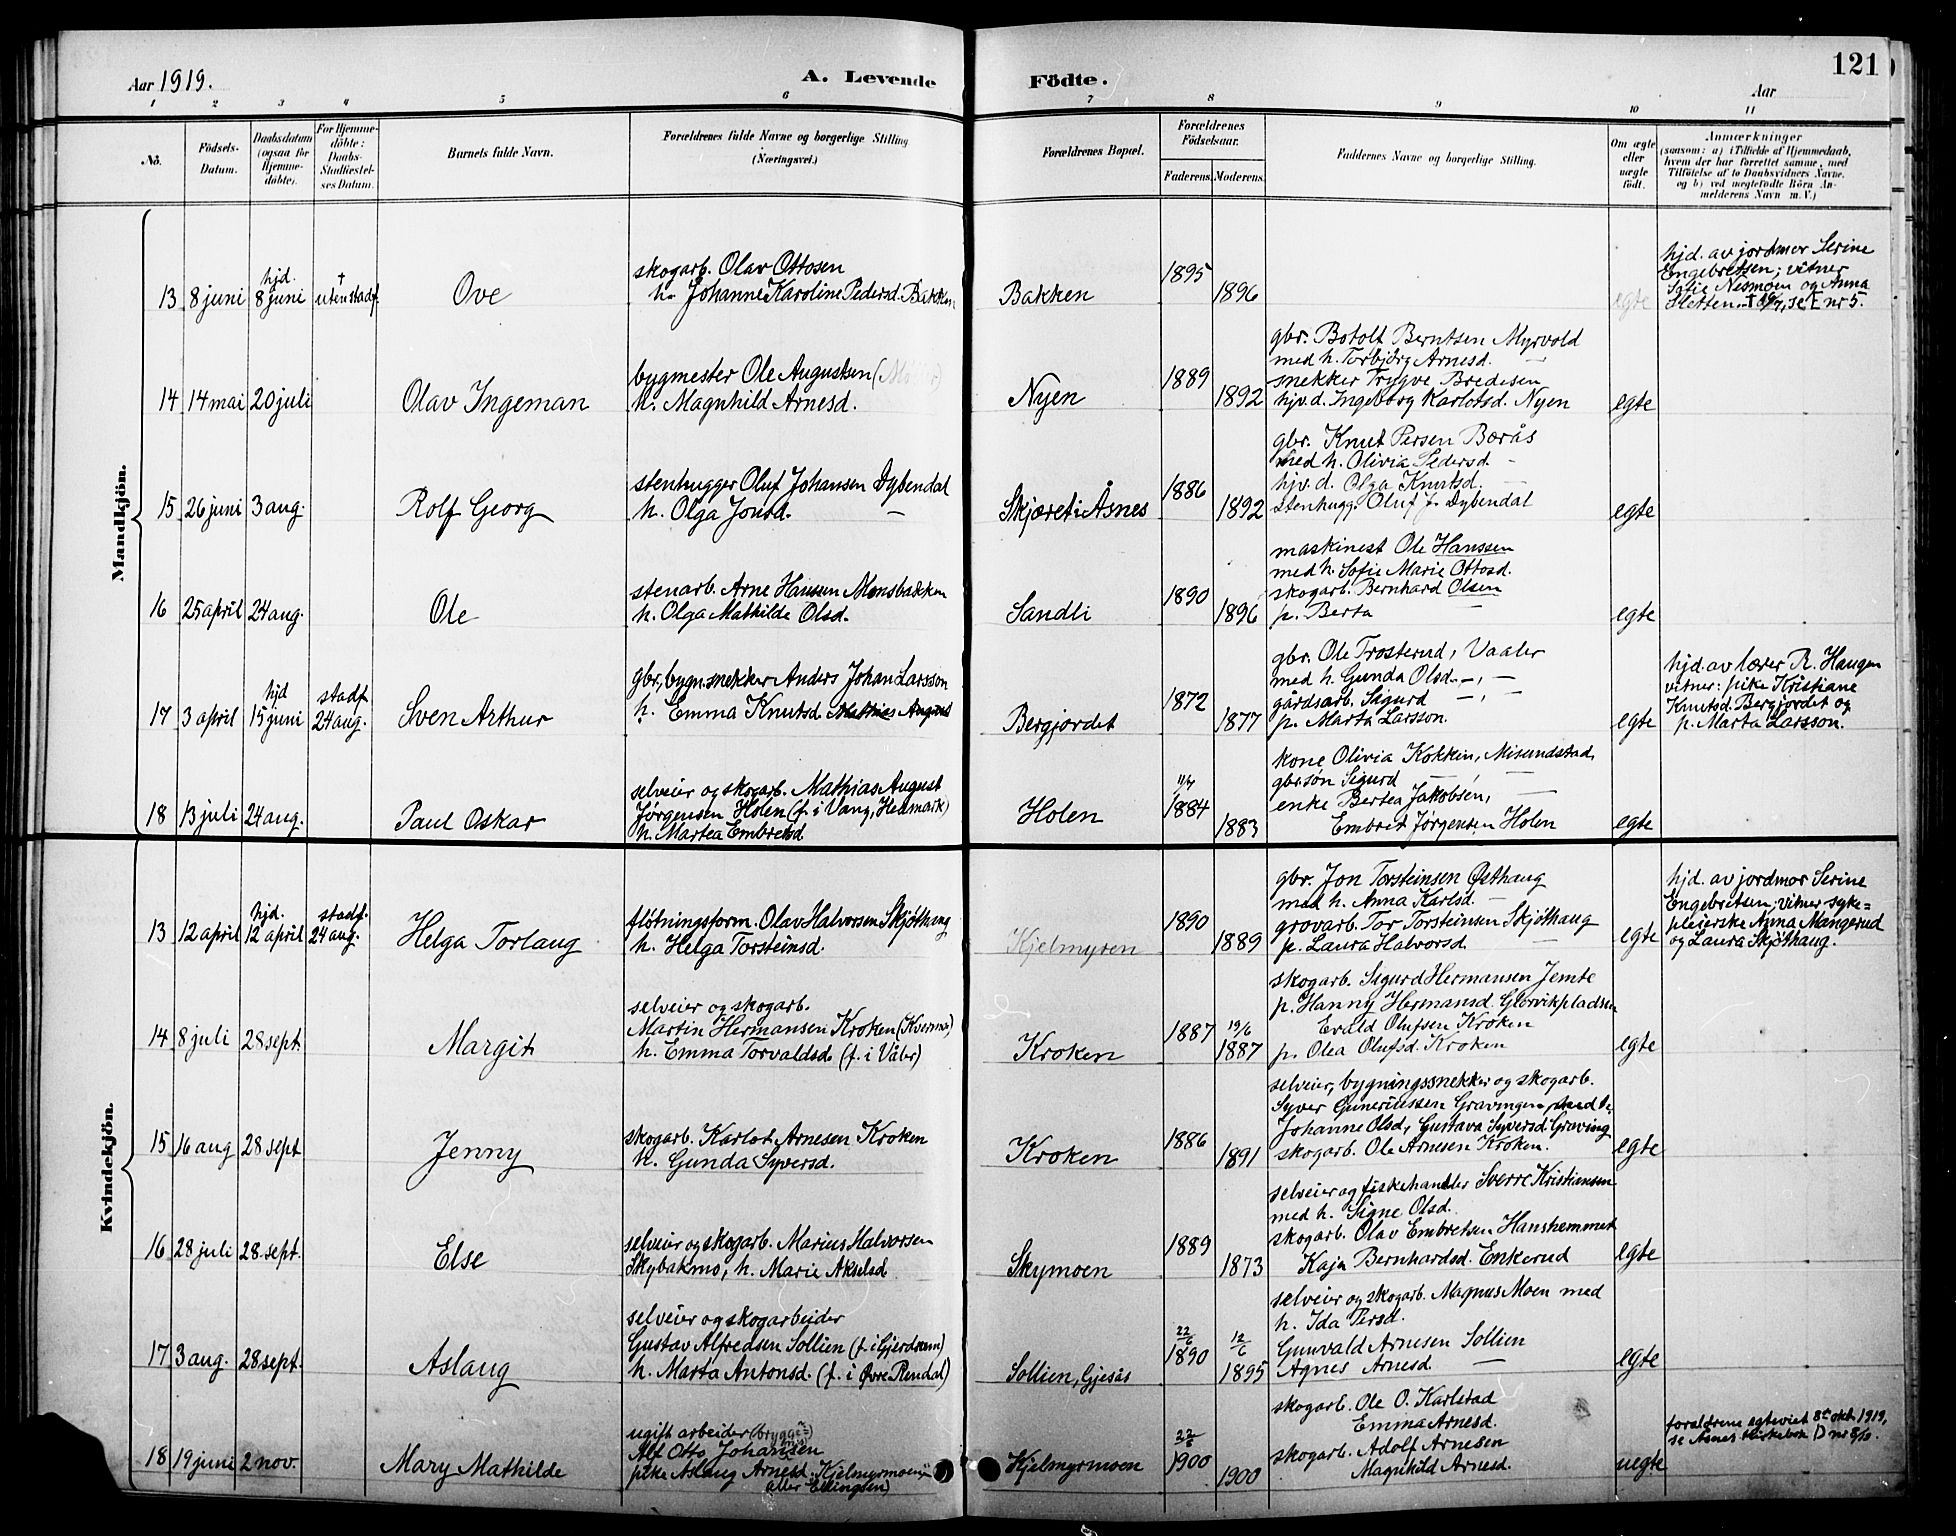 121
Aar 1919.
A. Levende Födte.
Aar
1 2 3 4 5 6 7 8 9 10 11
Nö.
Födsels-Datum.
Daabsdatum (ogsaa for Hjemme-döbte).
For Hjemme-döbte: Daabs-Stadfæstel-ses Datum.
Barnets fulde Navn.
Forældrenes fulde Navne og borgerlige Stilling (Næringsvei.)
Forældrenes Bopæl.
Forældrenes Födselsaar.
Faderens. Moderens.
Faddernes Navne og borgerlige Stilling.
Om ægte eller uægte födt.
Anmærkninger
(saasom: a) i Tilfælde af Hjemmedaab, hvem der har forrettet samme, med Tilföielse af to Daabsvidners Navne. og b) ved uægtefödte Börn An-melderens Navn m. V.)
Mandkjön.
13 8 juni hjd. 8 juni † uten stadf. Ove
skogarb. Olav Ottosen
h. Johanne Karoline Pedersd. Bakken
Bakken 1895 1896 egte
hjd. av jordmor Serine
Engebretsen; vitner
Sofie Nesmoen og Anna
Sletten. se E nr 5.
14 14 mai 20 juli Olav Ingeman
bygmester Ole Augustsen
h. Magnhild Arnesd.
Nyen 1889 1892
gbr. Botolf Berntsen Myrvold
med h. Torbjörg Arnesd. —
snekker Trygve Bredesen
hjv. d. Ingeborg Karlotsd. Nyen
egte
15 26 juni 3 aug. Rolf Georg
stenhugger Oluf Johansen Dybendal
h. Olga Jonsd. —
Skjæret i Åsnes 1886 1892
gbr. Knut Persen Berås
med h. Olivia Pedersd. -
hjv. d. Olga Knutsd. —
stenhugg. Oluf J. Dybendal
egte
16 25 april 24 aug. Ole
stenarb. Arne Hansen Monsbakken
h. Olga Mathilde Olsd.
Sandli 1890 1896
maskinist Ole Hanssen
med h. Sofie Marie Ottosd.
skogarb. Bernhard Olsen
p. Berta —
egte
17 3 april hjd 15 juni stadf. 24 aug. Sven Arthur
gbr., bygn.snekker Anders Johan Larsson
h. Emma Knutsd.
Bergjordet 1872 1877
gbr. Ole Trosterud, Vaaler
med h. Gunda Olsd. —, —
gårdsarb. Sigurd —, —
p. Marta Larsson.
egte
hjd. av lærer R. Haugen
vitner: pike Kristiane
Knutsd. Bergjordet og
p. Marta Larsson.
18 13 juli 24 aug. Paul Oskar
selveier og skogarb. Mathias August
Jørgensen Holen (f. i Vang, Hedmark)
h. Martea Embretsd
Holen 1884 1883
kone Olivia Kokkin, Misundstad
gbr.søn Sigurd — —
enke Bertea Jakobsen, —
Embret Jørgensen Holen
egte
Kvindekjön.
13 12 april hjd. 12 april stadf. 24 aug. Helga Torlaug
fløtningsform. Olav Halvorsen Skjøthaug
h. Helga Torsteinsd.
Kjelmyren 1890 1889
gbr. Jon Torsteinsen Østhaug
med h. Anna Karlsd. —
grovarb. Tor Torsteinsen Skjøthaug
p. Laura Halvorsd. —
egte
hjd. av jordmor Serine
Engebretsen; vitner syke=
pleierske Anna Mangerud
og Laura Skjøthaug.
14 8 juli 28 sept. Margit
selveier og skogarb.
Martin Hermansen Kroken
h. Emma Torvaldsd. (f. i Våler)
Kroken 1887 19/6 1887
skogarb. Sigurd Hermansen Jemte
p. Hanny Hermansd. Glorvikpladsen
Evald Olufsen Kroken
p. Olea Olufsd. Kroken
egte
15 16 aug 28 sept Jenny
skogarb. Karlot Arnesen Kroken
h. Gunda Syversd.
Kroken 1886 1891
selveier, bygningssnekker og skogarb.
Syver Guneriussen Gravingen, med h.
Johanne Olsd, Gustava Syversd Graving
skogarb. Ole Arnesen Kroken.
egte
16 28 juli 28. sept. Else
selveier og skogarb. Marius Halvorsen
Skybakmo, h. Marie Akselsd
Skymoen 1889 1873
selveier og fiskehandler Sverre Kristiansen
med h. Signe Olsd.
skogarb. Olav Embretsen Hanshemmet
Kaja Bernhardsd. Enkerud
egte
17 3 aug. 28 sept. Aslaug
selveier og skogarbeider
Gustav Alfredsen Sollien (f. i Gjerdrum)
h. Marta Antonsd. (f. i Øvre Rendal)
Sollien, Gjesås 22/6 1890 12/6 1895
selveier og skogarb. Magnus Moen med
h. Ida Persd.
Gunvald Arnesen Sollien
Agnes Arnesd. —
egte
18 19 juni 2 nov. Mary Mathilde
ugift arbeider
Alf Otto Johansen
pike Aslaug Arnesd. Kjelmyrmoen
(eller Ellingsen)
Kjelmyrmoen 1900 1900
skogarb. Ole O. Karlstad
Emma Arnesd.
skogarb. Adolf Arnesen
Magnhild Arnesd.
uegte
forældrene egteviet 8de okt. 1919,
se Åsnes kirkebok D nr 8/19.